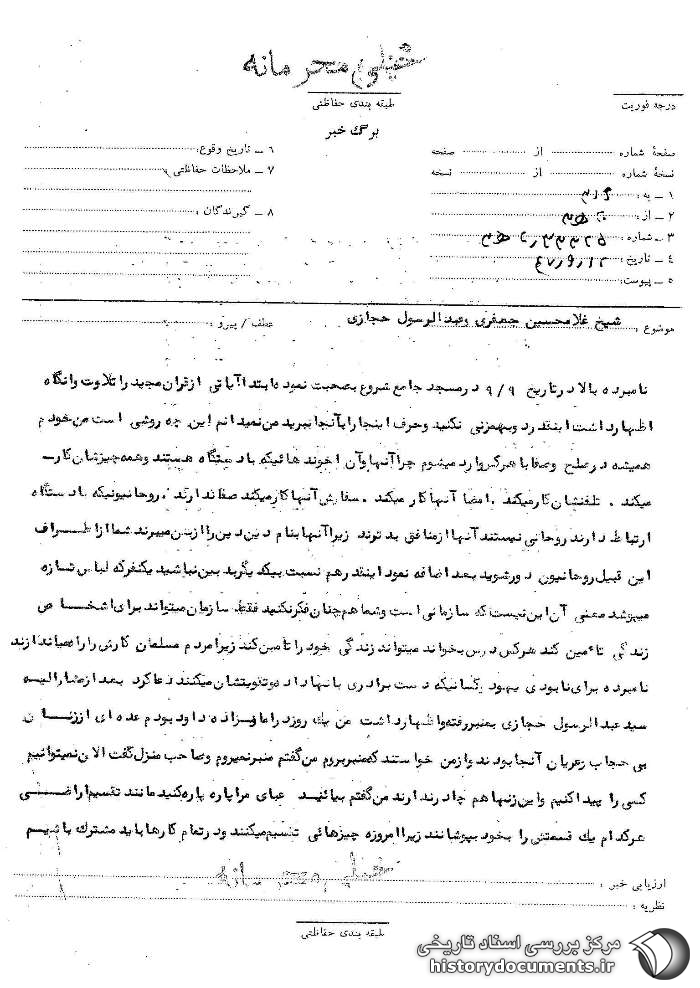 خیلی محرمانه
طبقه بندی حفاظتی
درجه فوریت
برگ خبر
صفحهٔ شماره از صفحه
نسخهٔ شماره از نسخه
۱ ـ به :
۲ ـ از :
۳ ـ شماره :
۴ ـ تاریخ :
۵ ـ پیوست :
۶ ـ تاریخ وقوع :
۷ ـ ملاحظات حفاظتی
۸ ـ گیرندگان :
موضوع : شیخ غلامحسین جعفری وعبدالرسول حجازی عطف / پیرو :
نامبرده بالا در تاریخ ۹/۹ در مسجد جامع شروع بصحبت نموده ابتدا آیاتی از قران مجید را تلاوت وانگاه
اظهارداشت اینقدر دوبهمزنی نکنید وحرف اینجا رابآنجا نبرید من نمیدانم این چه روشی است من خودم
همیشه در صلح وصفا با هرکس وارد میشوم چرا آنها وآن اخوند هائیکه با دستگاه هستند وهمه چیزشان کار
میکند . تلفنشان کار میکند . امضا آنها کار میکند . سفارش آنها کار میکند صفا ندارند . روحانیونیکه با دستگاه
ارتباط دارند روحانی نیستند آنها از منافق بدترند زیرا آنها بنام دین دین را از بین میبرند شما از اطراف
این قبیل روحانیون دور شوید بعد اضافه نمود اینقدر هم نسبت بیکدیگر بدبین نباشید یکنفر که لباس تازه
میپوشد معنی آن این نیست که سازمانی است وشما هم چنان فکر نکنید فقط سازمان میتواند برای اشخاص
زندگی تأمین کند هرکس درس بخواند میتواند زندگی خود را تأمین کند زیرا مردم مسلمان کارش را راه میاندازند
نامبرده برای نابودی یهود وکسانیکه دست برادری بانها داده وتقویتشان میکنند دعا کرد بعد از مشارالیه
سید عبدالرسول حجازی بمنبر رفته واظهارداشت من یک روز در امامزاده داود بودم عده ای از زنان
بی حجاب وعریان آنجا بودند وازمن خواستند که منبر بروم من گفتم منبر نمیروم وصاحب منزل گفت الان نمیتوانیم
کسی را پیدا کنیم واین زنها هم چادر ندارند من گفتم بیائید عبای مرا پاره پاره کنید مانند تقسیم اراضی
هرکدام یک قسمتش را بخود بپوشانند زیرا امروزه چیزهائی تقسیم میکنند ودرتمام کارها باید مشترک باشیم
ارزیابی خبر :
نظریه :
خیلی محرمانه
طبقه بندی حفاظتی
مرکز بررسی اسناد تاریخی
historydocuments.ir